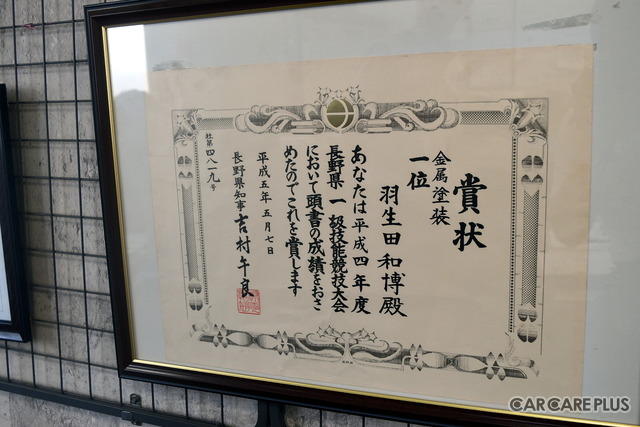 賞状
金属塗装
一位
羽生田和博殿
あなたは平成四年度
長野県一級技能競技大会
において頭書の成績をおさ
めたのでこれを賞します
平成五年五月七日
長野県知事 吉村午良
社第四八一九号
CAR CARE PLUS